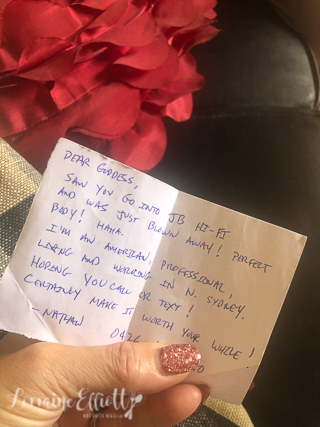 DEAR GODDESS,
SAW YOU GO INTO JB HI-FI
AND WAS JUST BLOWN AWAY! PERFECT
BODY! HAHA.
I'M AN AMERICAN, PROFESSIONAL,
LIVING AND WORKING IN N. SYDNEY.
HOPING YOU CALL OR TEXT!
CERTAINLY MAKE IT WORTH YOUR WHILE!
-NATHAN
Lorraine Elliott